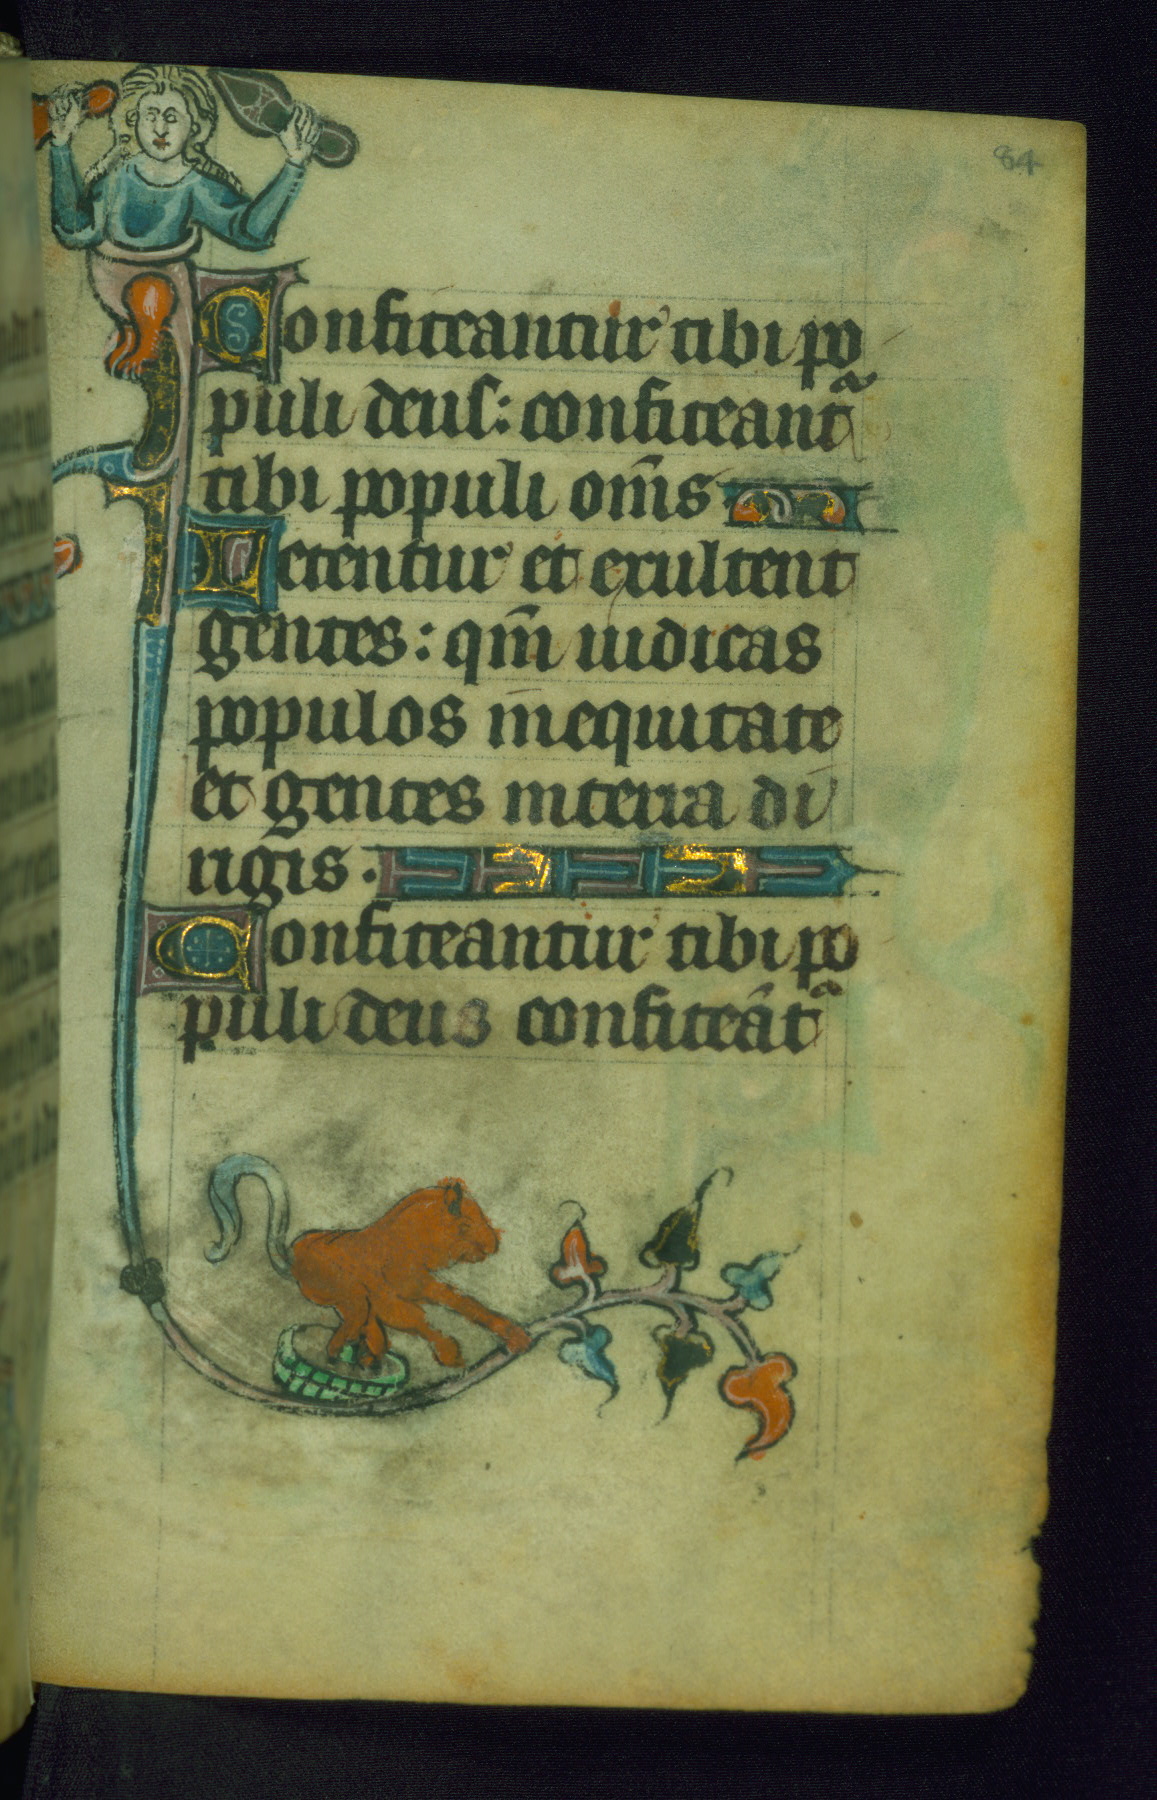 84
Confiteantur tibi po
puli deus: confiteant᷑
tibi populi om̅s
Letentur et exultent
gentes: qm̅ iudicas
populos in equitate
et gentes in terra di
rigis.
Confiteantur tibi po
puli deus confiteāt᷑